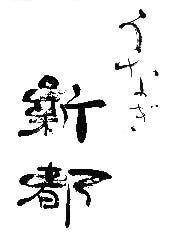 うなぎ
新都